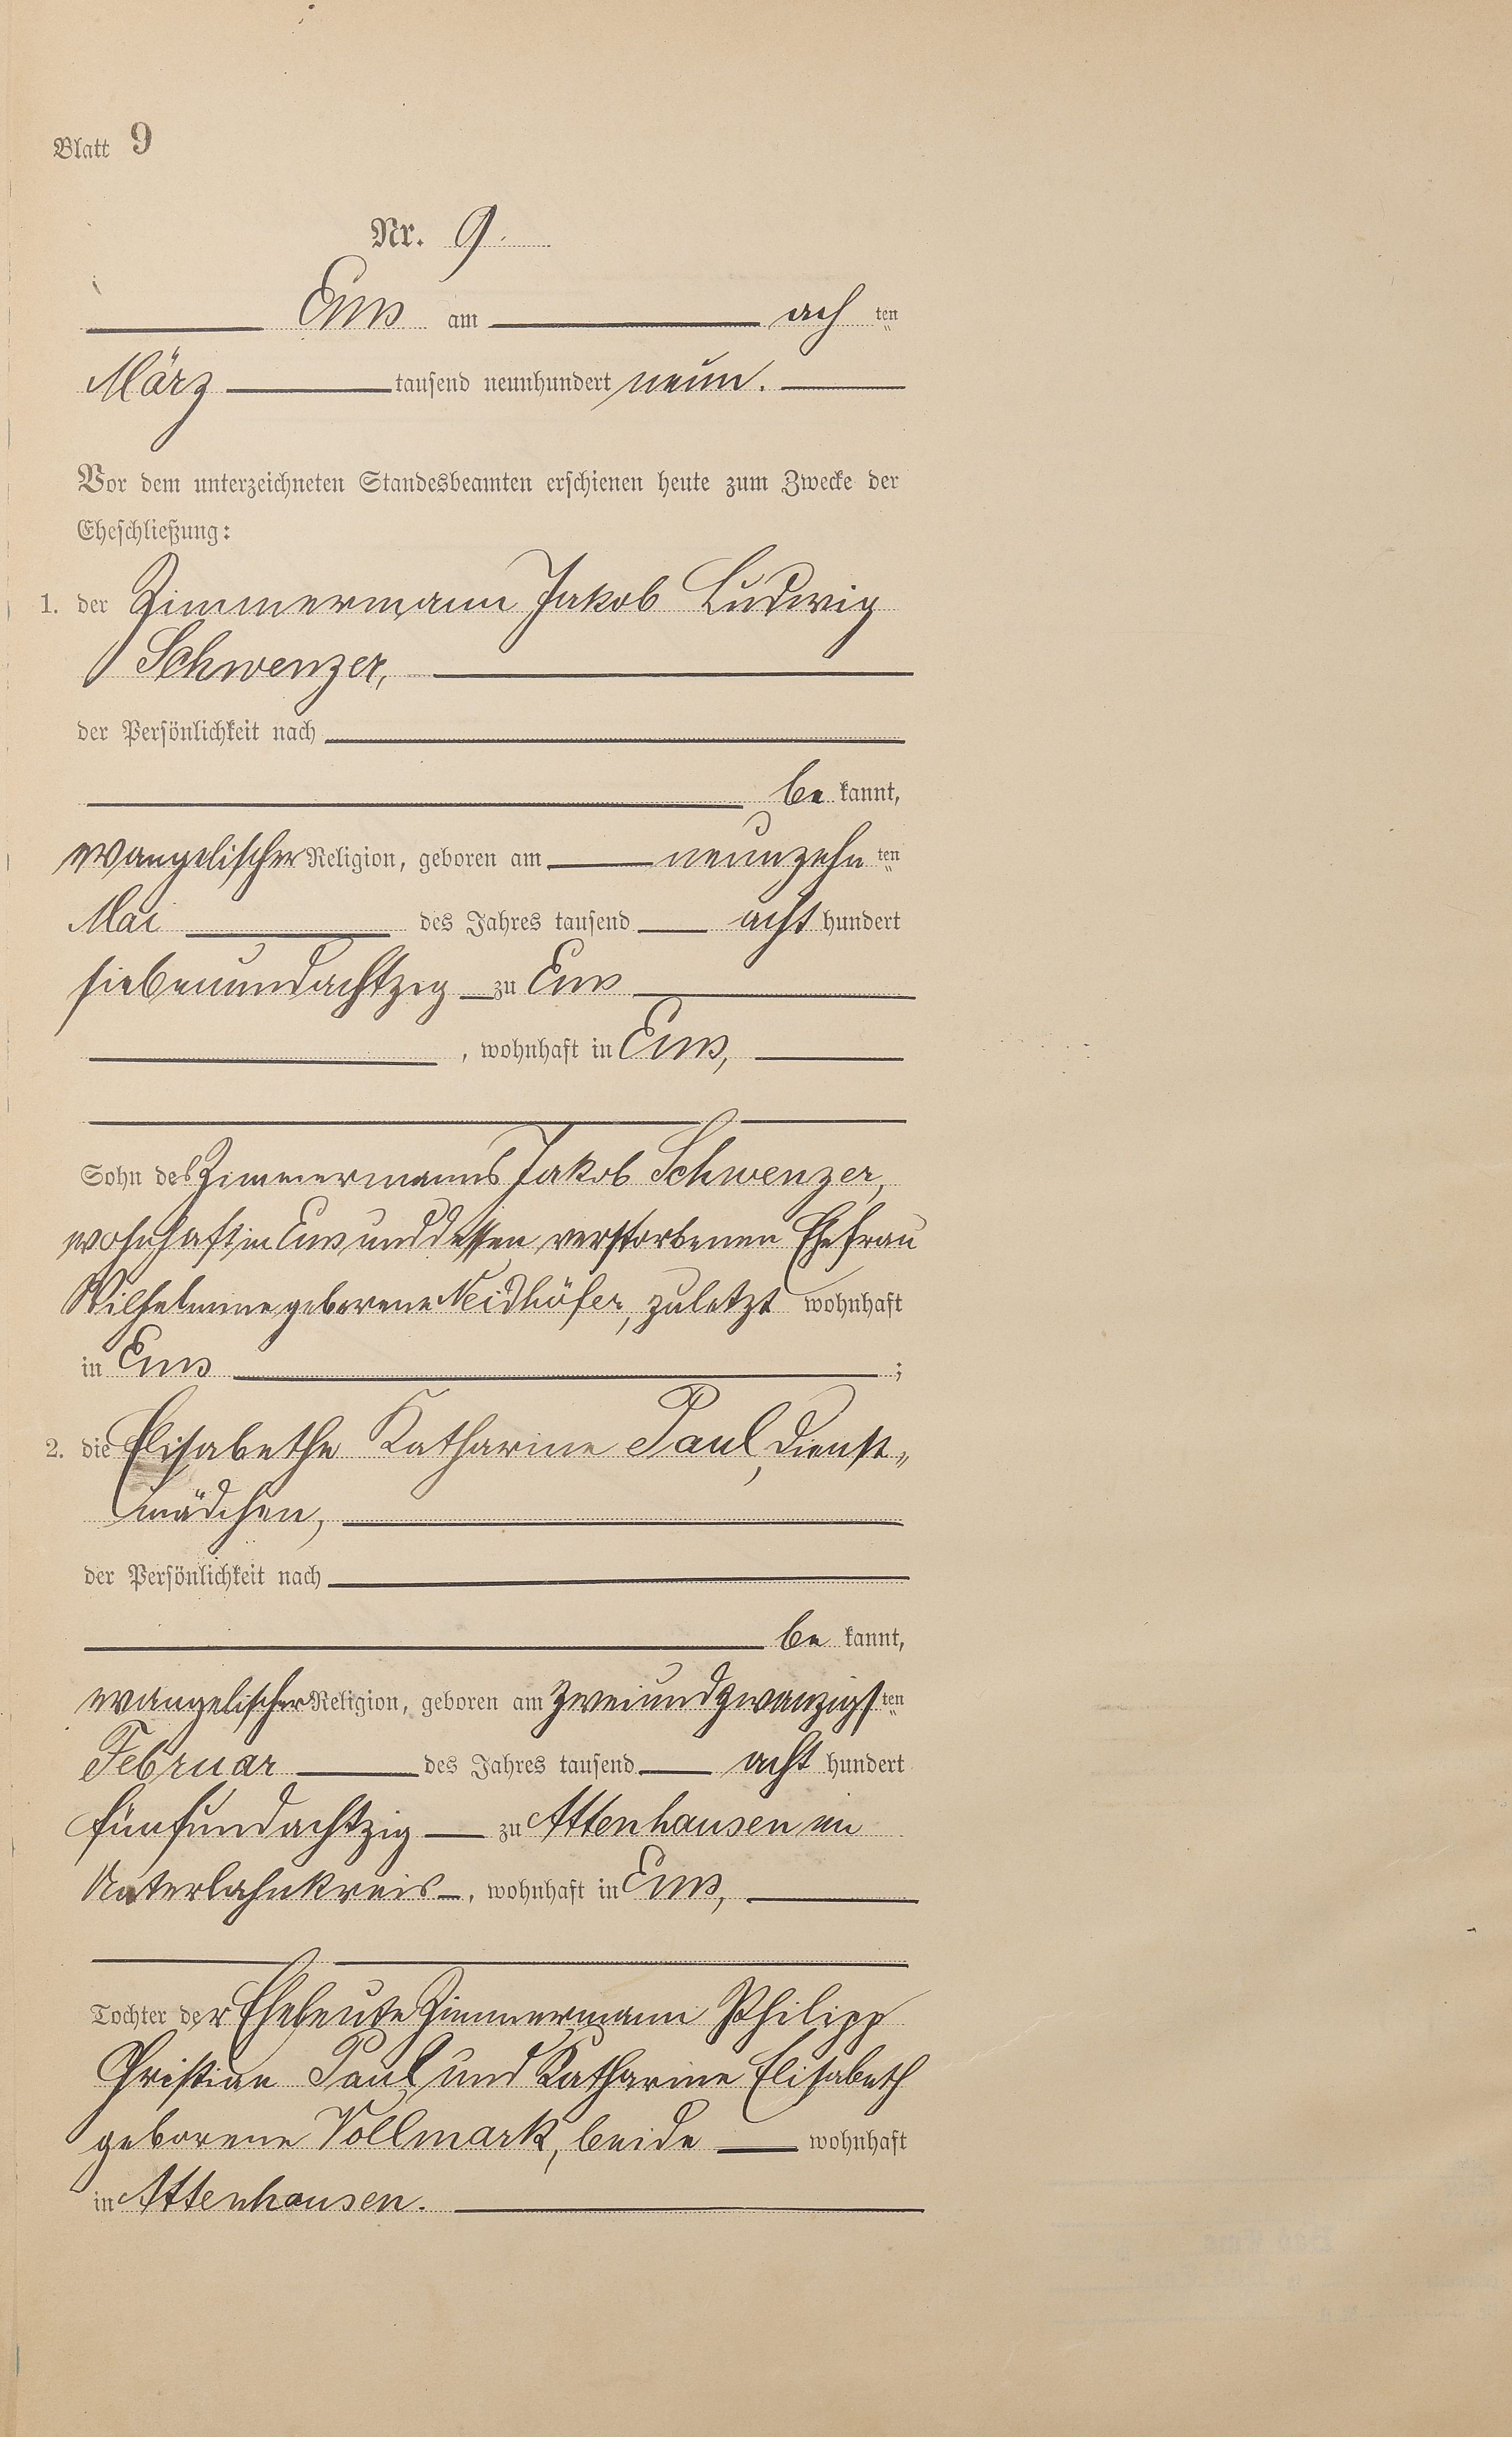 Blatt 9
Nr. 9.
Ems am ach ten
März tausend neunhundert neun.
Vor dem unterzeichneten Standesbeamten erschienen heute zum Zwecke der
Eheschließung:
1. der Zimmermann Jakob Ludwig
Schwenzer,
der Persönlichkeit nach
be kannt,
evangelischer Religion, geboren am neunzehn ten
Mai des Jahres tausend acht hundert
siebenundachtzig zu Ems
, wohnhaft in Ems,
Sohn des Zimmermanns Jakob Schwenzer,
wohnhaft in Ems und dessen verstorbenen Ehefrau
Wilhelmine geborene Neidhöfer, zuletzt wohnhaft
in Ems ;
2. die Elisabethe Katharine Paul, Dienst„
mädchen,
der Persönlichkeit nach
be kannt,
evangelischer Religion, geboren am zweiundzwanzigs ten
Februar des Jahres tausend acht hundert
fünfundachtzig zu Attenhausen im
Unterlahnkreis, wohnhaft in Ems,
Tochter der Eheleute Zimmermann Philipp
Christian Paul und Katharine Elisabeth
geborene Vollmark, beide wohnhaft
in Attenhausen.